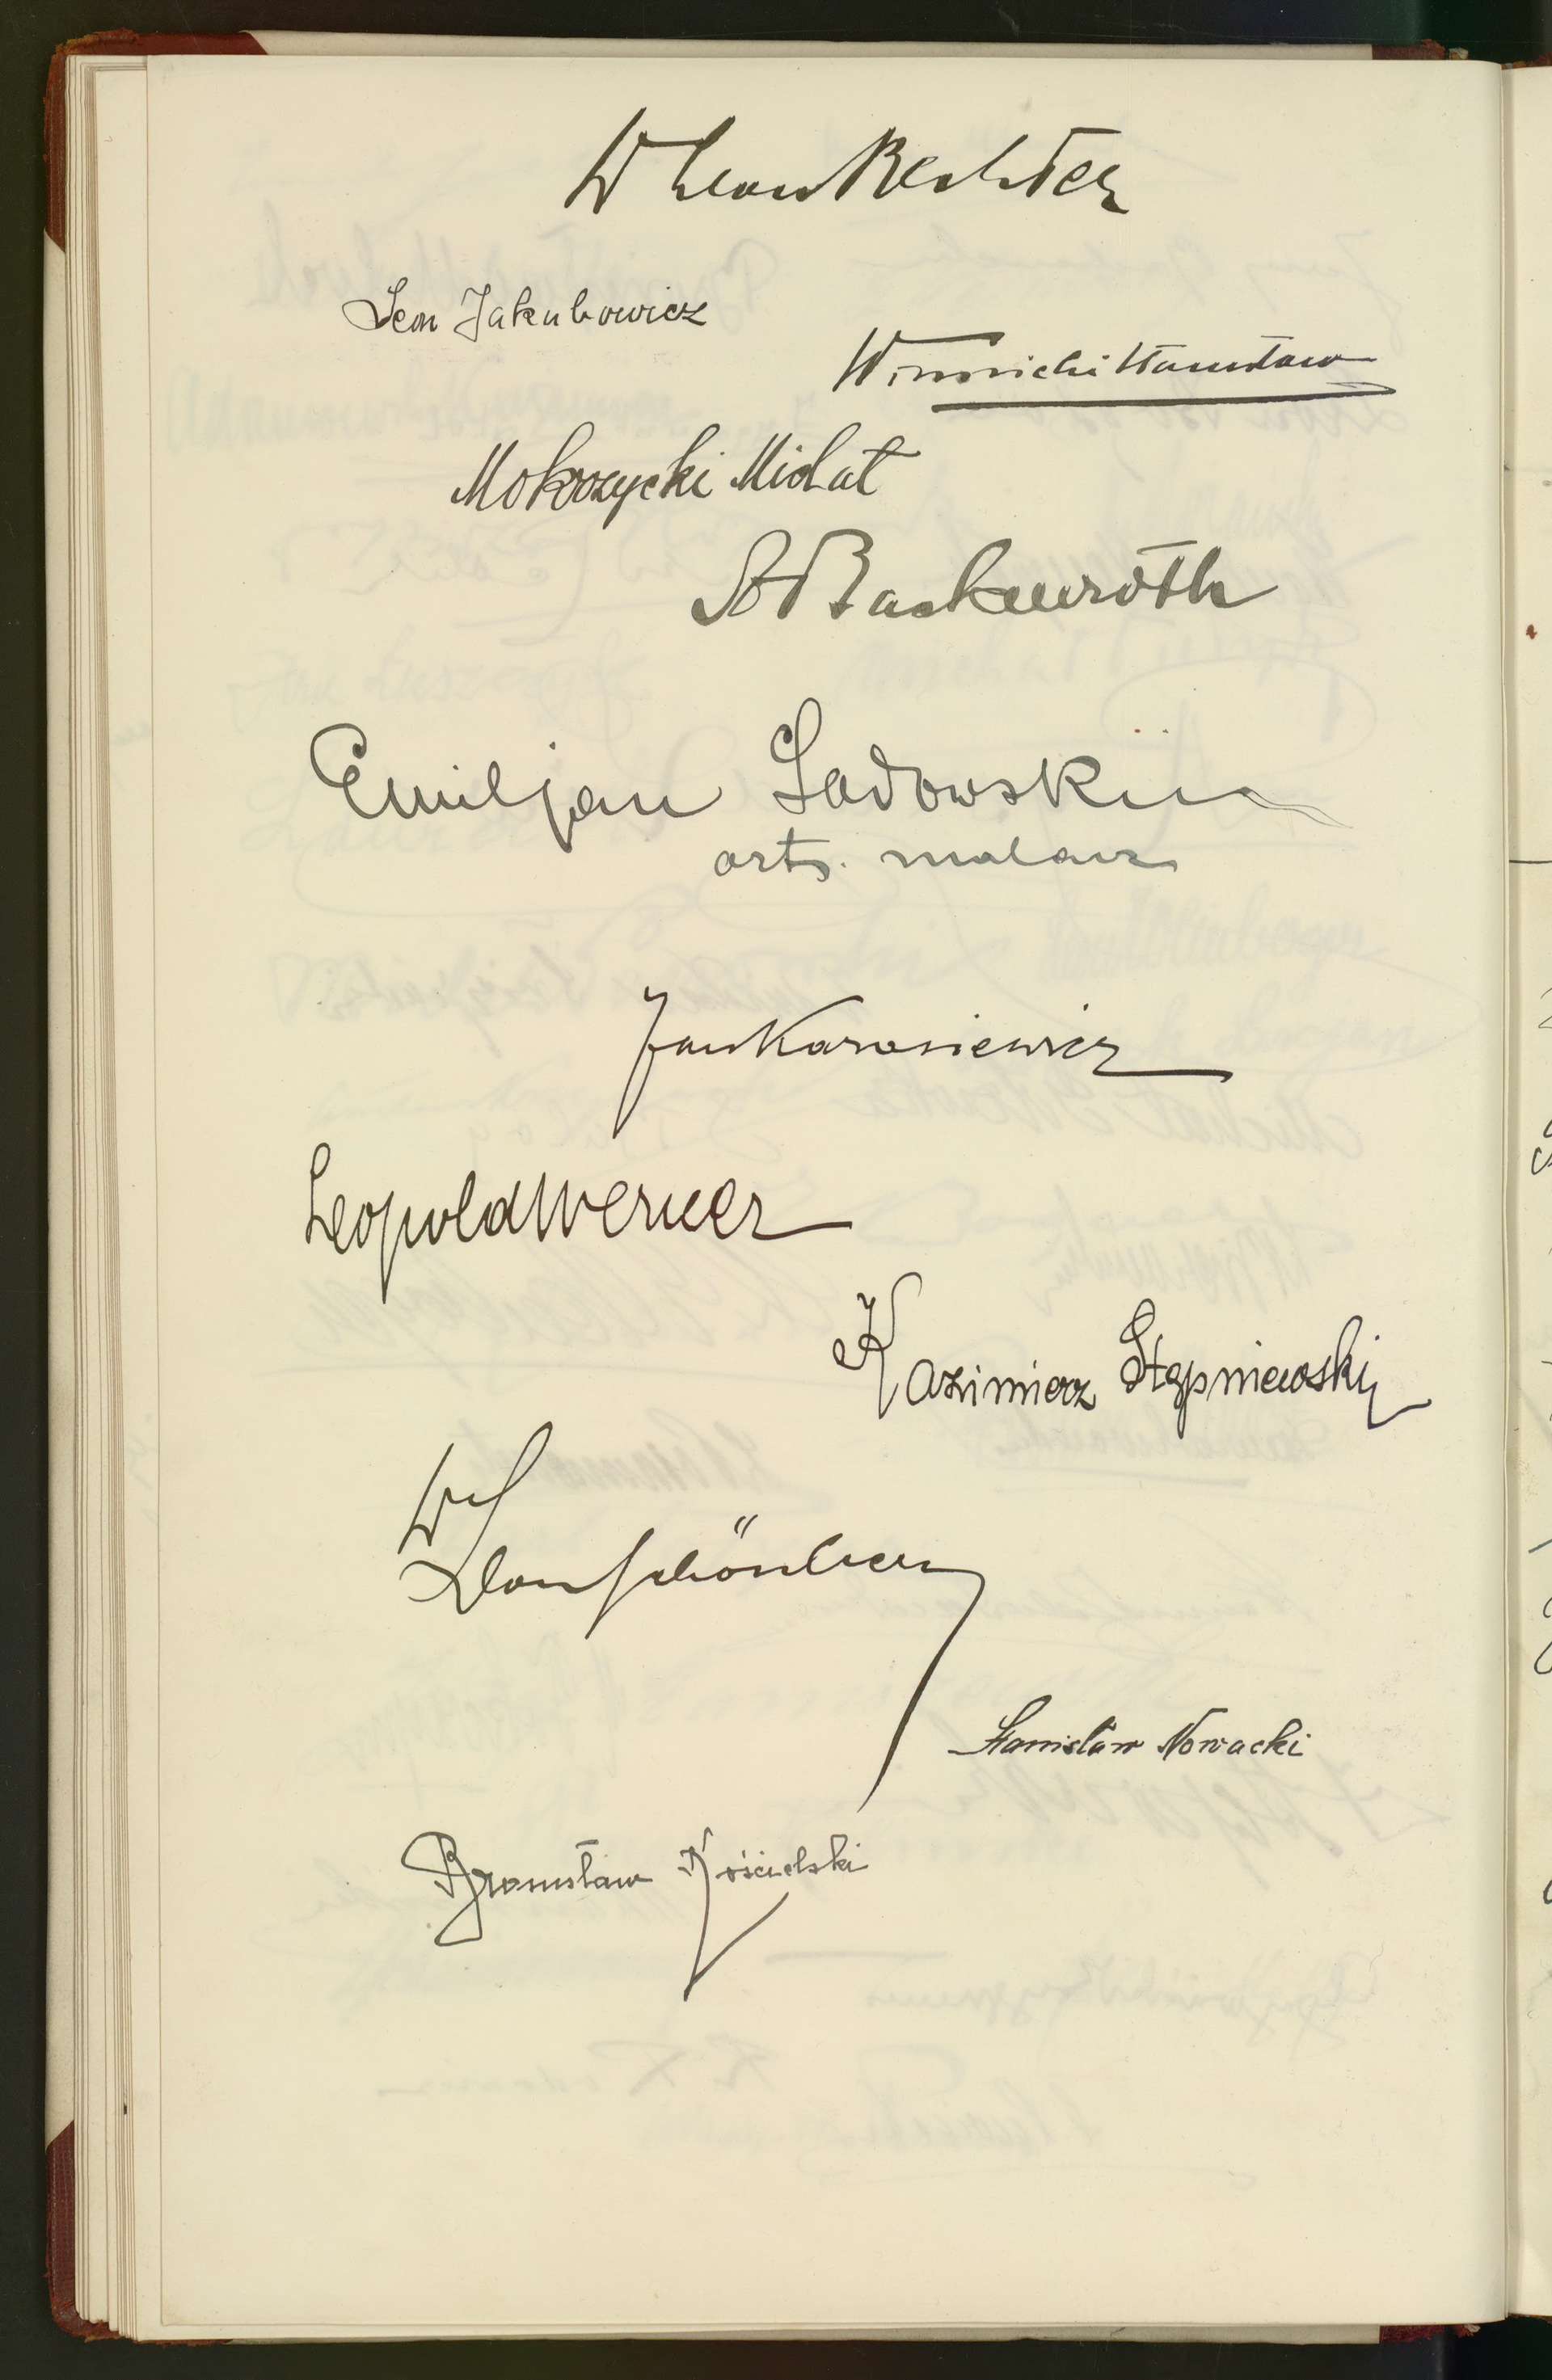 W Leon Rechter
Leon Jakubowicz
Winnicki Stanisław
Mokrzycki Michał
St Backenroth
Emiljan Sadowski
arts. malarz
Jan Karasiewicz
Leopold Werner
Kazimierz Stępniewski
Leon Schönberg
Stanisław Nowacki
Bronisław Kościelski